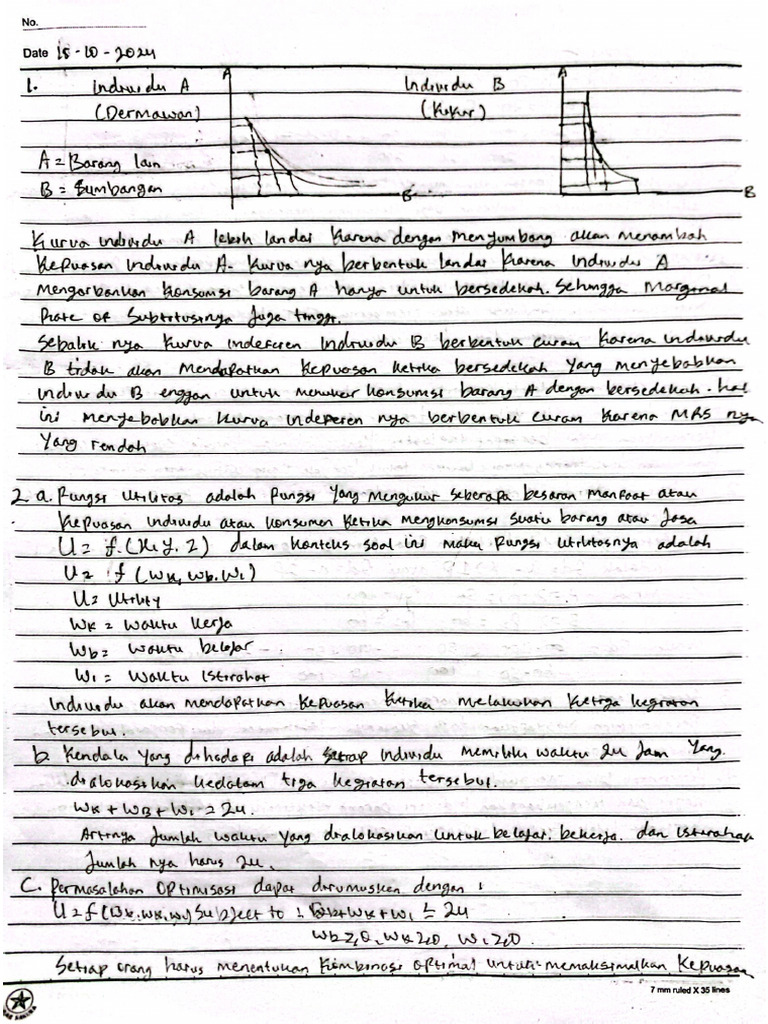 No.
Date 15-10-2024
1. Individu A A Individu B A
(Dermawan) (Kikir)
A = Barang lain
B = Sumbangan B B
Kurva individu A lebih landai karena dengan menyumbang akan menambah
kepuasan individu A. Kurva nya berbentuk landai karena individu A
mengorbankan konsumsi barang A hanya untuk bersedekah. Sehingga Marginal
Rate of Subtitusinya juga tinggi.
Sebalik nya kurva indeferen individu B berbentuk curam karena individu
B tidak akan mendapatkan kepuasan ketika bersedekah yang menyebabkan
individu B enggan untuk menukar konsumsi barang A dengan bersedekah. hal
ini menyebabkan kurva indeperen nya berbentuk curam karena MRS nya
yang rendah
2. a. Fungsi utilitas adalah fungsi yang mengukur seberapa besaran manfaat atau
kepuasan individu atau konsumen ketika mengkonsumsi suatu barang atau jasa
U = f.(x, y, z) dalam konteks soal ini maka fungsi utilitasnya adalah
U = f(Wk, Wb, Wi)
U = Utility
Wk = waktu kerja
Wb = waktu belajar
Wi = waktu istirahat
Individu akan mendapatkan kepuasan ketika melakukan ketiga kegiatan
tersebut.
b. Kendala yang dihadapi adalah setiap individu memiliki waktu 24 jam yang
dialokasikan kedalam tiga kegiatan tersebut.
Wk + WB + Wi = 24.
Artinya jumlah waktu yang dialokasikan untuk belajar, bekerja, dan istirahat
jumlah nya harus 24.
C. Permasalahan optimisasi dapat dirumuskan dengan :
U = f(Wb, Wk, Wi) Subject to : Wb + Wk + Wi ≤ 24
Wb ≥ 0, Wk ≥ 0, Wi ≥ 0.
Setiap orang harus menentukan kombinasi optimal untuk memaksimalkan kepuasan
7 mm ruled X 35 lines